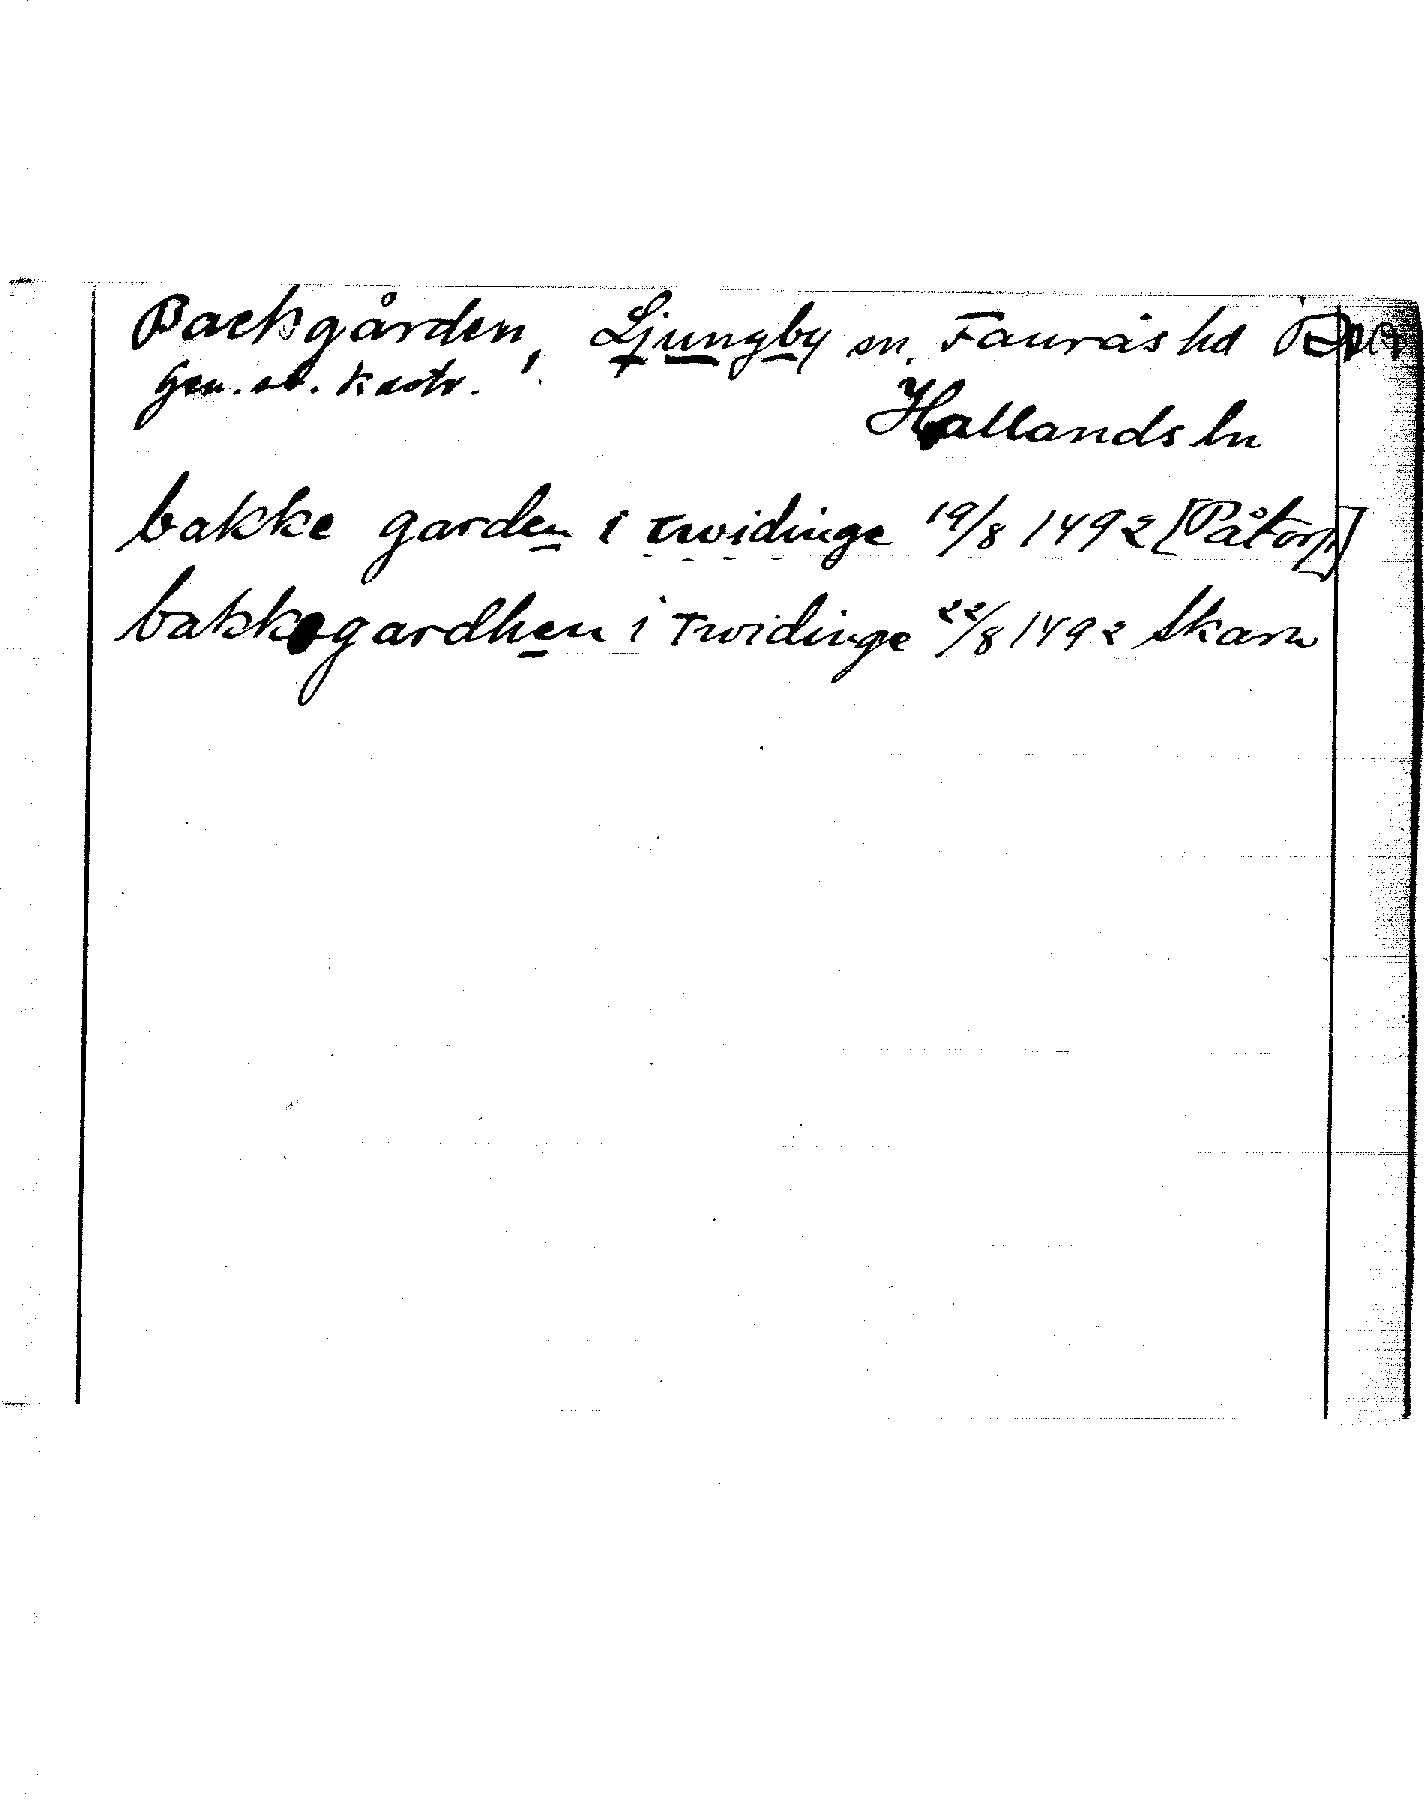 Backgården, Ljungby sn. Faurås hd
Gen. st. kartv.
Hallands ln
bakke garden i twidinge 19/8 1492 [Påtorp]
bakkegardhen i Twidinge 22/8 1492 Skarv